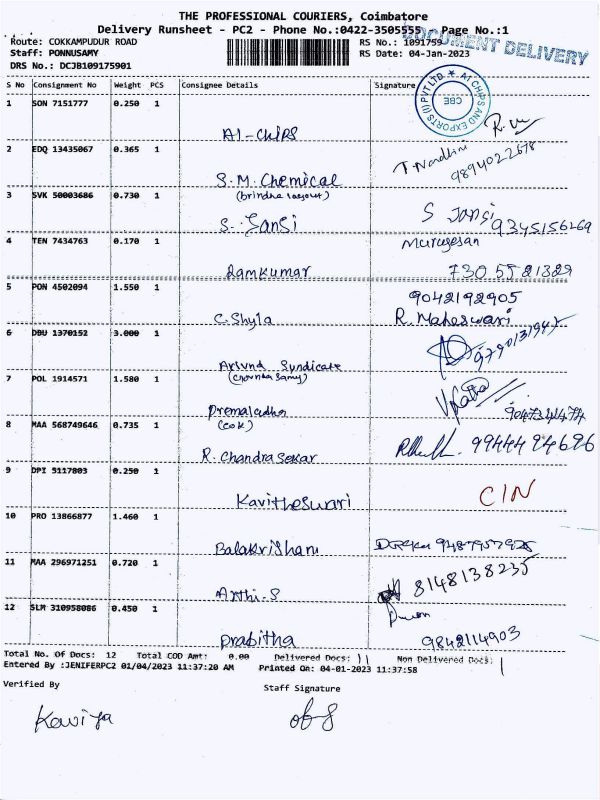 THE PROFESSIONAL COURIERS, Coimbatore
Delivery Runsheet - PC2 - Phone No.:0422-3505555 Page No.:1
DOCUMENT DELIVERY
Route: COKKAMPUDUR ROAD RS No.: 1091759
Staff: PONNUSAMY RS Date: 04-Jan-2023
DRS No.: DCJB109175901
S No Consignment No Weight PCS Consignee Details Signature
AI CHIPS AND EXPORTS (I) PVT LTD ★ CBE
1 SON 7151777 0.250 1
AI-CHIPS
2 EDQ 13435067 0.365 1
S.M. Chemical T. Nandhini 9894022678
3 SVK 50003686 0.730 1 (brindha layout)
S. Jansi S Jansi 9345156269
4 TEN 7434763 0.170 1 Murugesan
Ramkumar 730 5521329
5 PON 4502094 1.550 1 9042192905
C. Shyla R. Maheswari
6 DBU 1370152 3.000 1 9790131947
Arivnd Syndicate
7 POL 1914571 1.580 1
Premaladha 9047341474
8 MAA 568749646 0.735 1 (COK)
R. Chandrasekar 9944424626
9 DPI 5117803 0.250 1
Kavitheswari CIN
10 PRO 13866877 1.460 1
Balakrishanu 9487957925
11 MAA 296971251 0.720 1 8148138235
Arthi-S
12 SLM 310958086 0.450 1
Prabitha 9842114903
Total No. Of Docs: 12 Total COD Amt: 0.00 Delivered Docs: 11 Non Delivered Docs: 1
Entered By :JENIFERPC2 01/04/2023 11:37:20 AM Printed On: 04-01-2023 11:37:58
Verified By Staff Signature
Kaviya